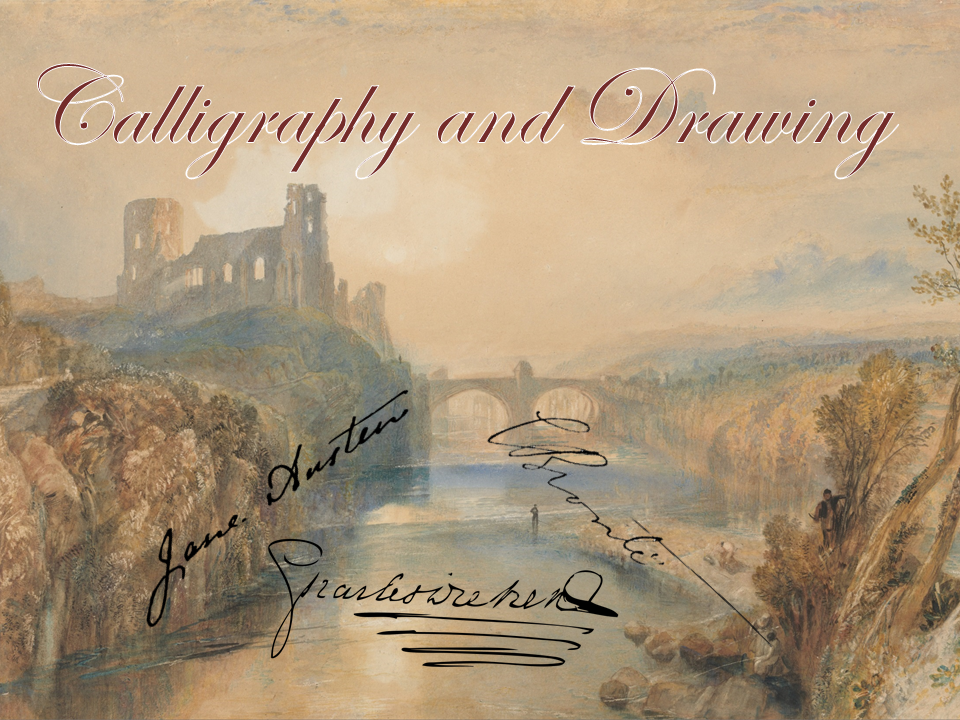 Calligraphy and Drawing
Jane Austen
CBrontë
Charles Dickens